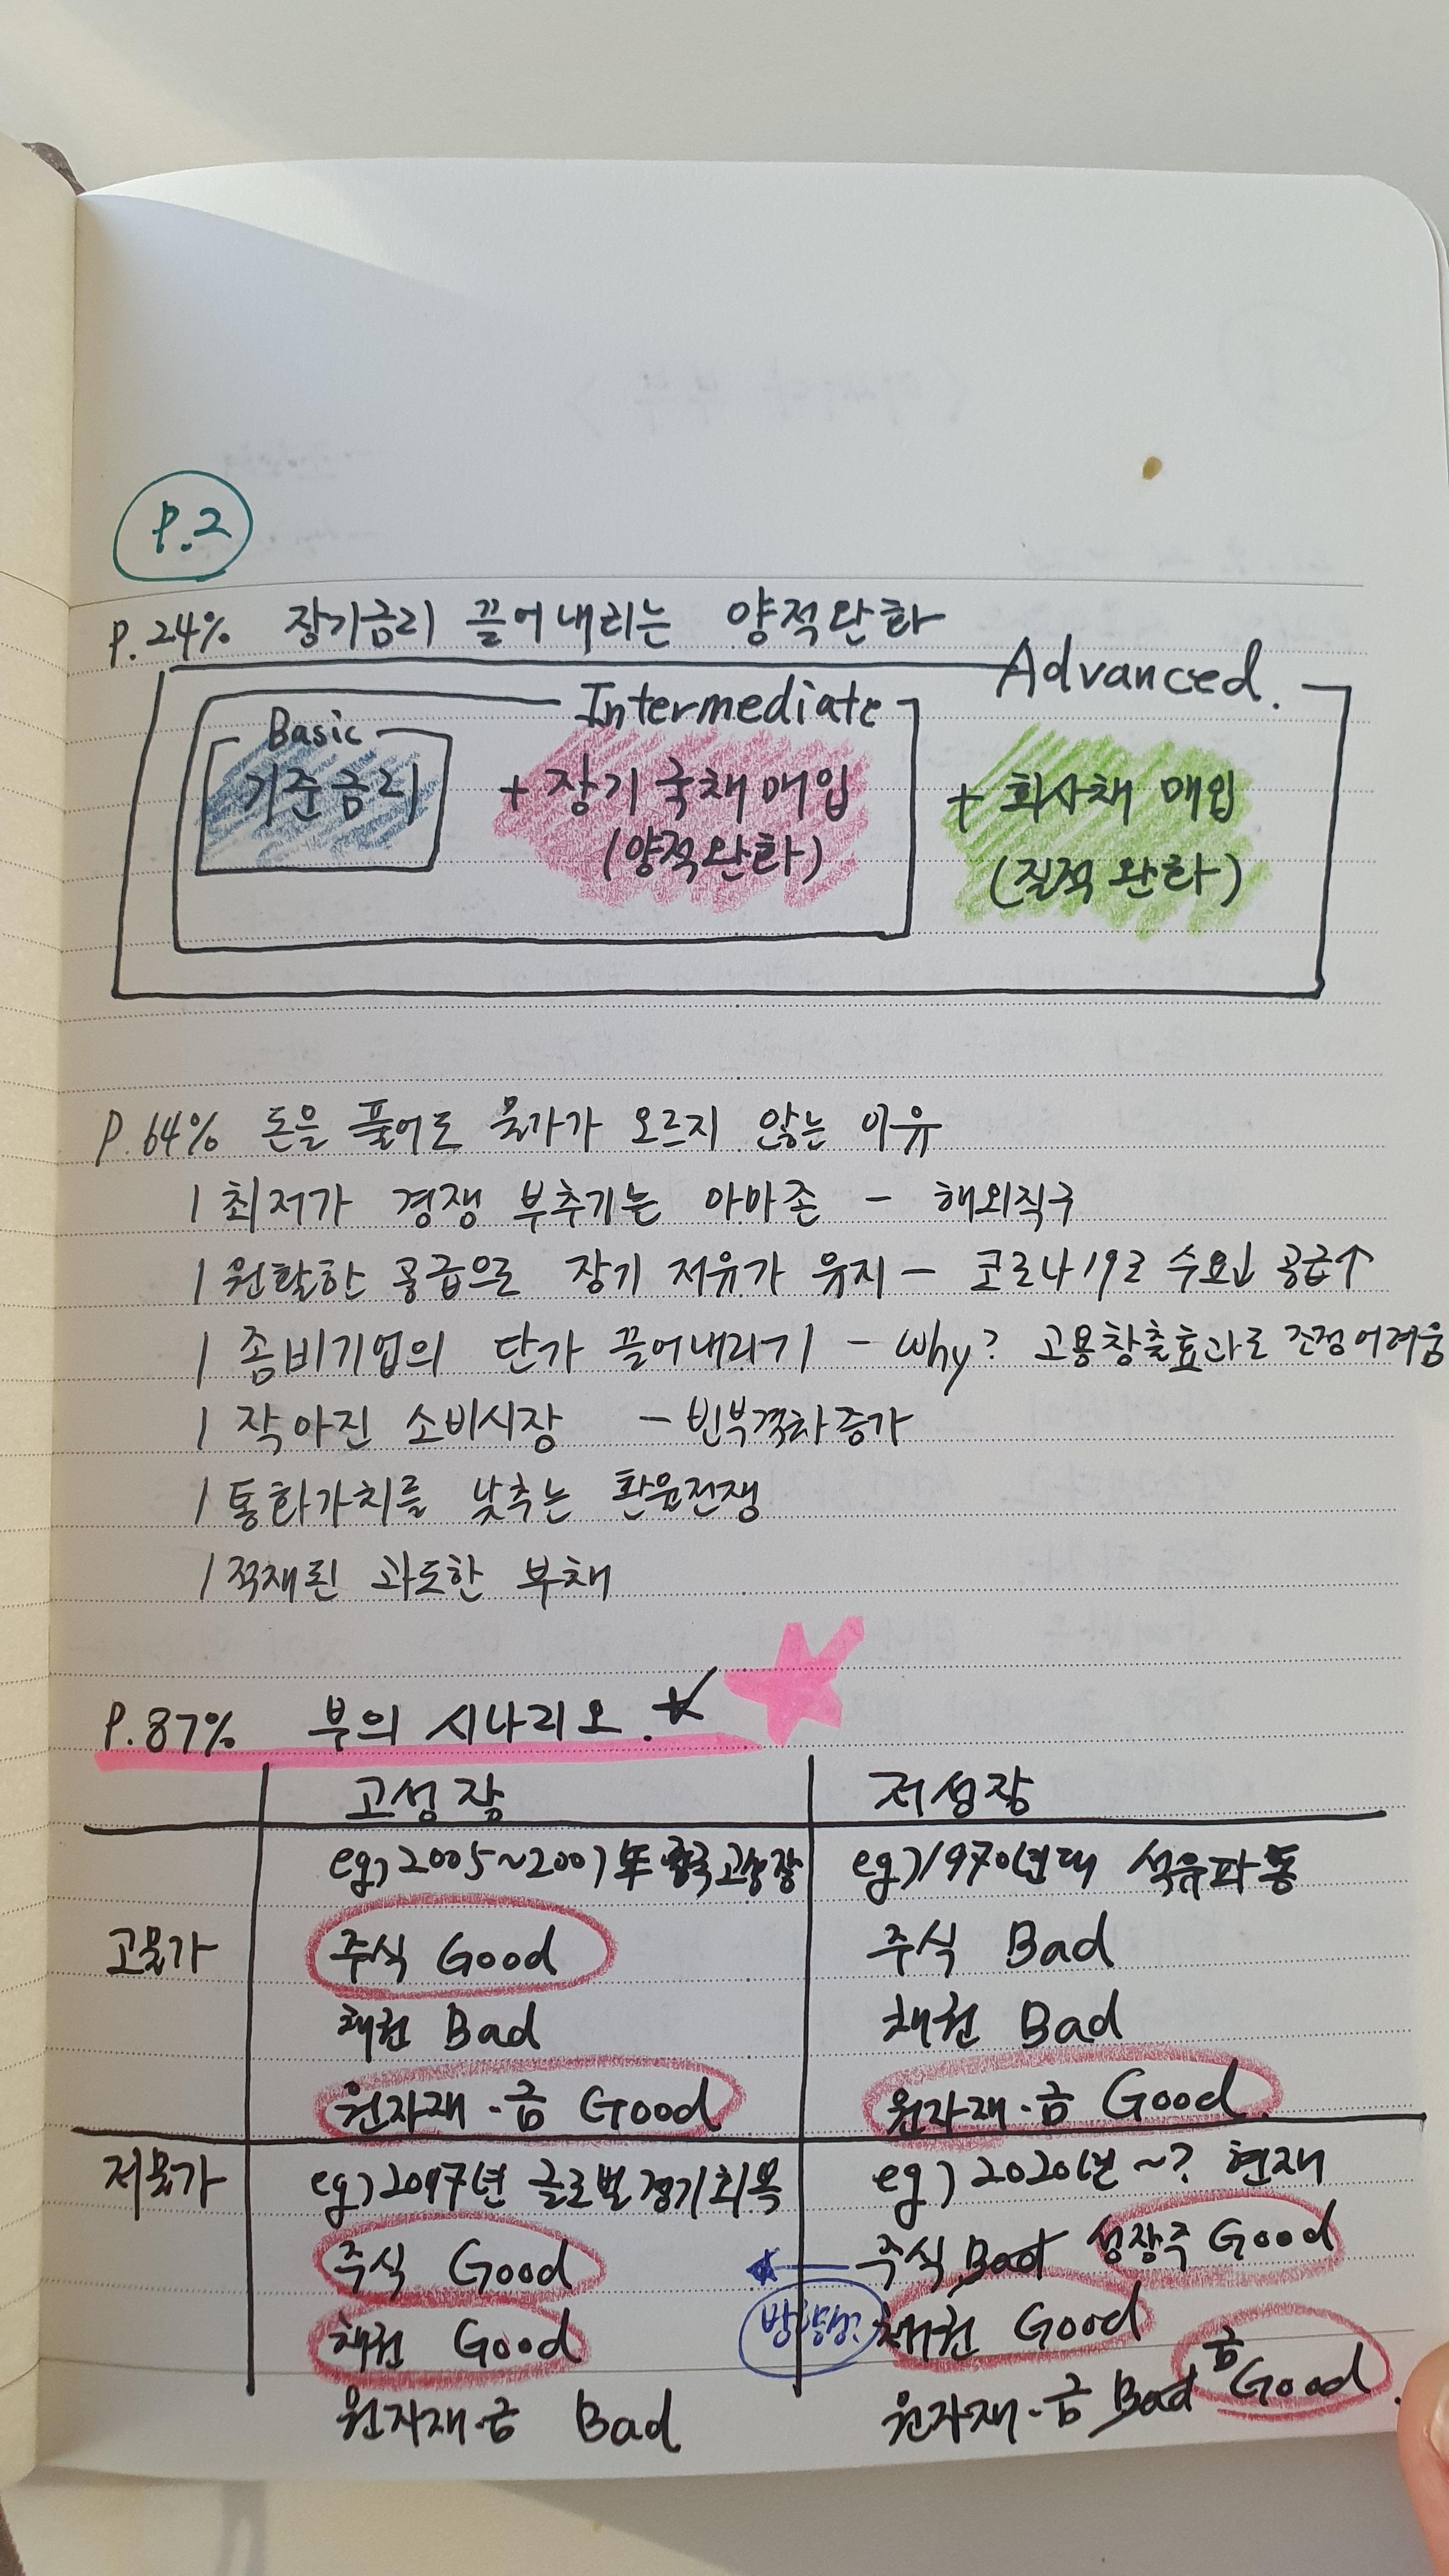 P.2
P.24% 장기금리 끌어내리는 양적완화
Advanced.
Intermediate
Basic
기준금리 + 장기 국채 매입 + 회사채 매입
(양적완화) (질적 완화)
P.64% 돈을 풀어도 물가가 오르지 않는 이유
| 최저가 경쟁 부추기는 아마존 - 해외직구
| 원활한 공급으로 장기 저유가 유지 - 코로나19로 수요↓ 공급↑
| 좀비기업의 단가 끌어내리기 - Why? 고용창출효과로 조정어려움
| 작아진 소비시장 - 빈부격차증가
| 통화가치를 낮추는 환율전쟁
| 적재된 과도한 부채
P.87% 부의 시나리오.★
고성장 저성장
eg) 2005~2007年 중국고성장 eg) 1970년대 석유파동
고물가 주식 Good 주식 Bad
채권 Bad 채권 Bad
원자재·금 Good 원자재·금 Good
저물가 eg) 2017년 글로벌경기회복 eg) 2020년~? 현재
주식 Good ★ 주식 Bad 성장주 Good
채권 Good 방향성. 채권 Good
금 Good
원자재·금 Bad 원자재·금 Bad